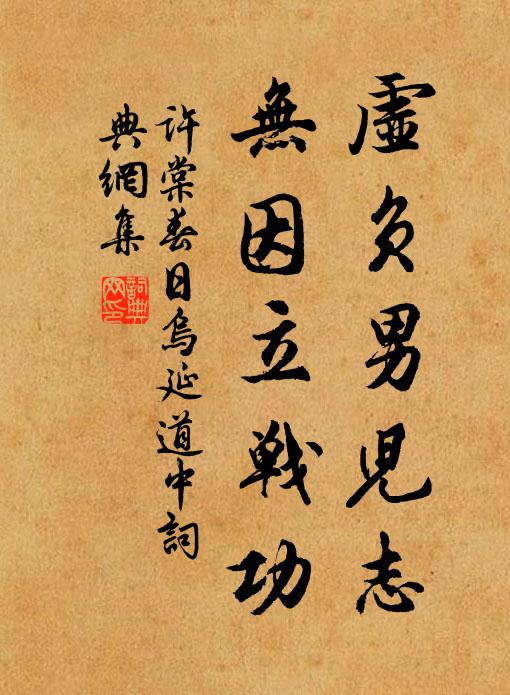 虛負男兒志
無因立戰功
許棠春日烏延道中詞
典網集
詞典
网印